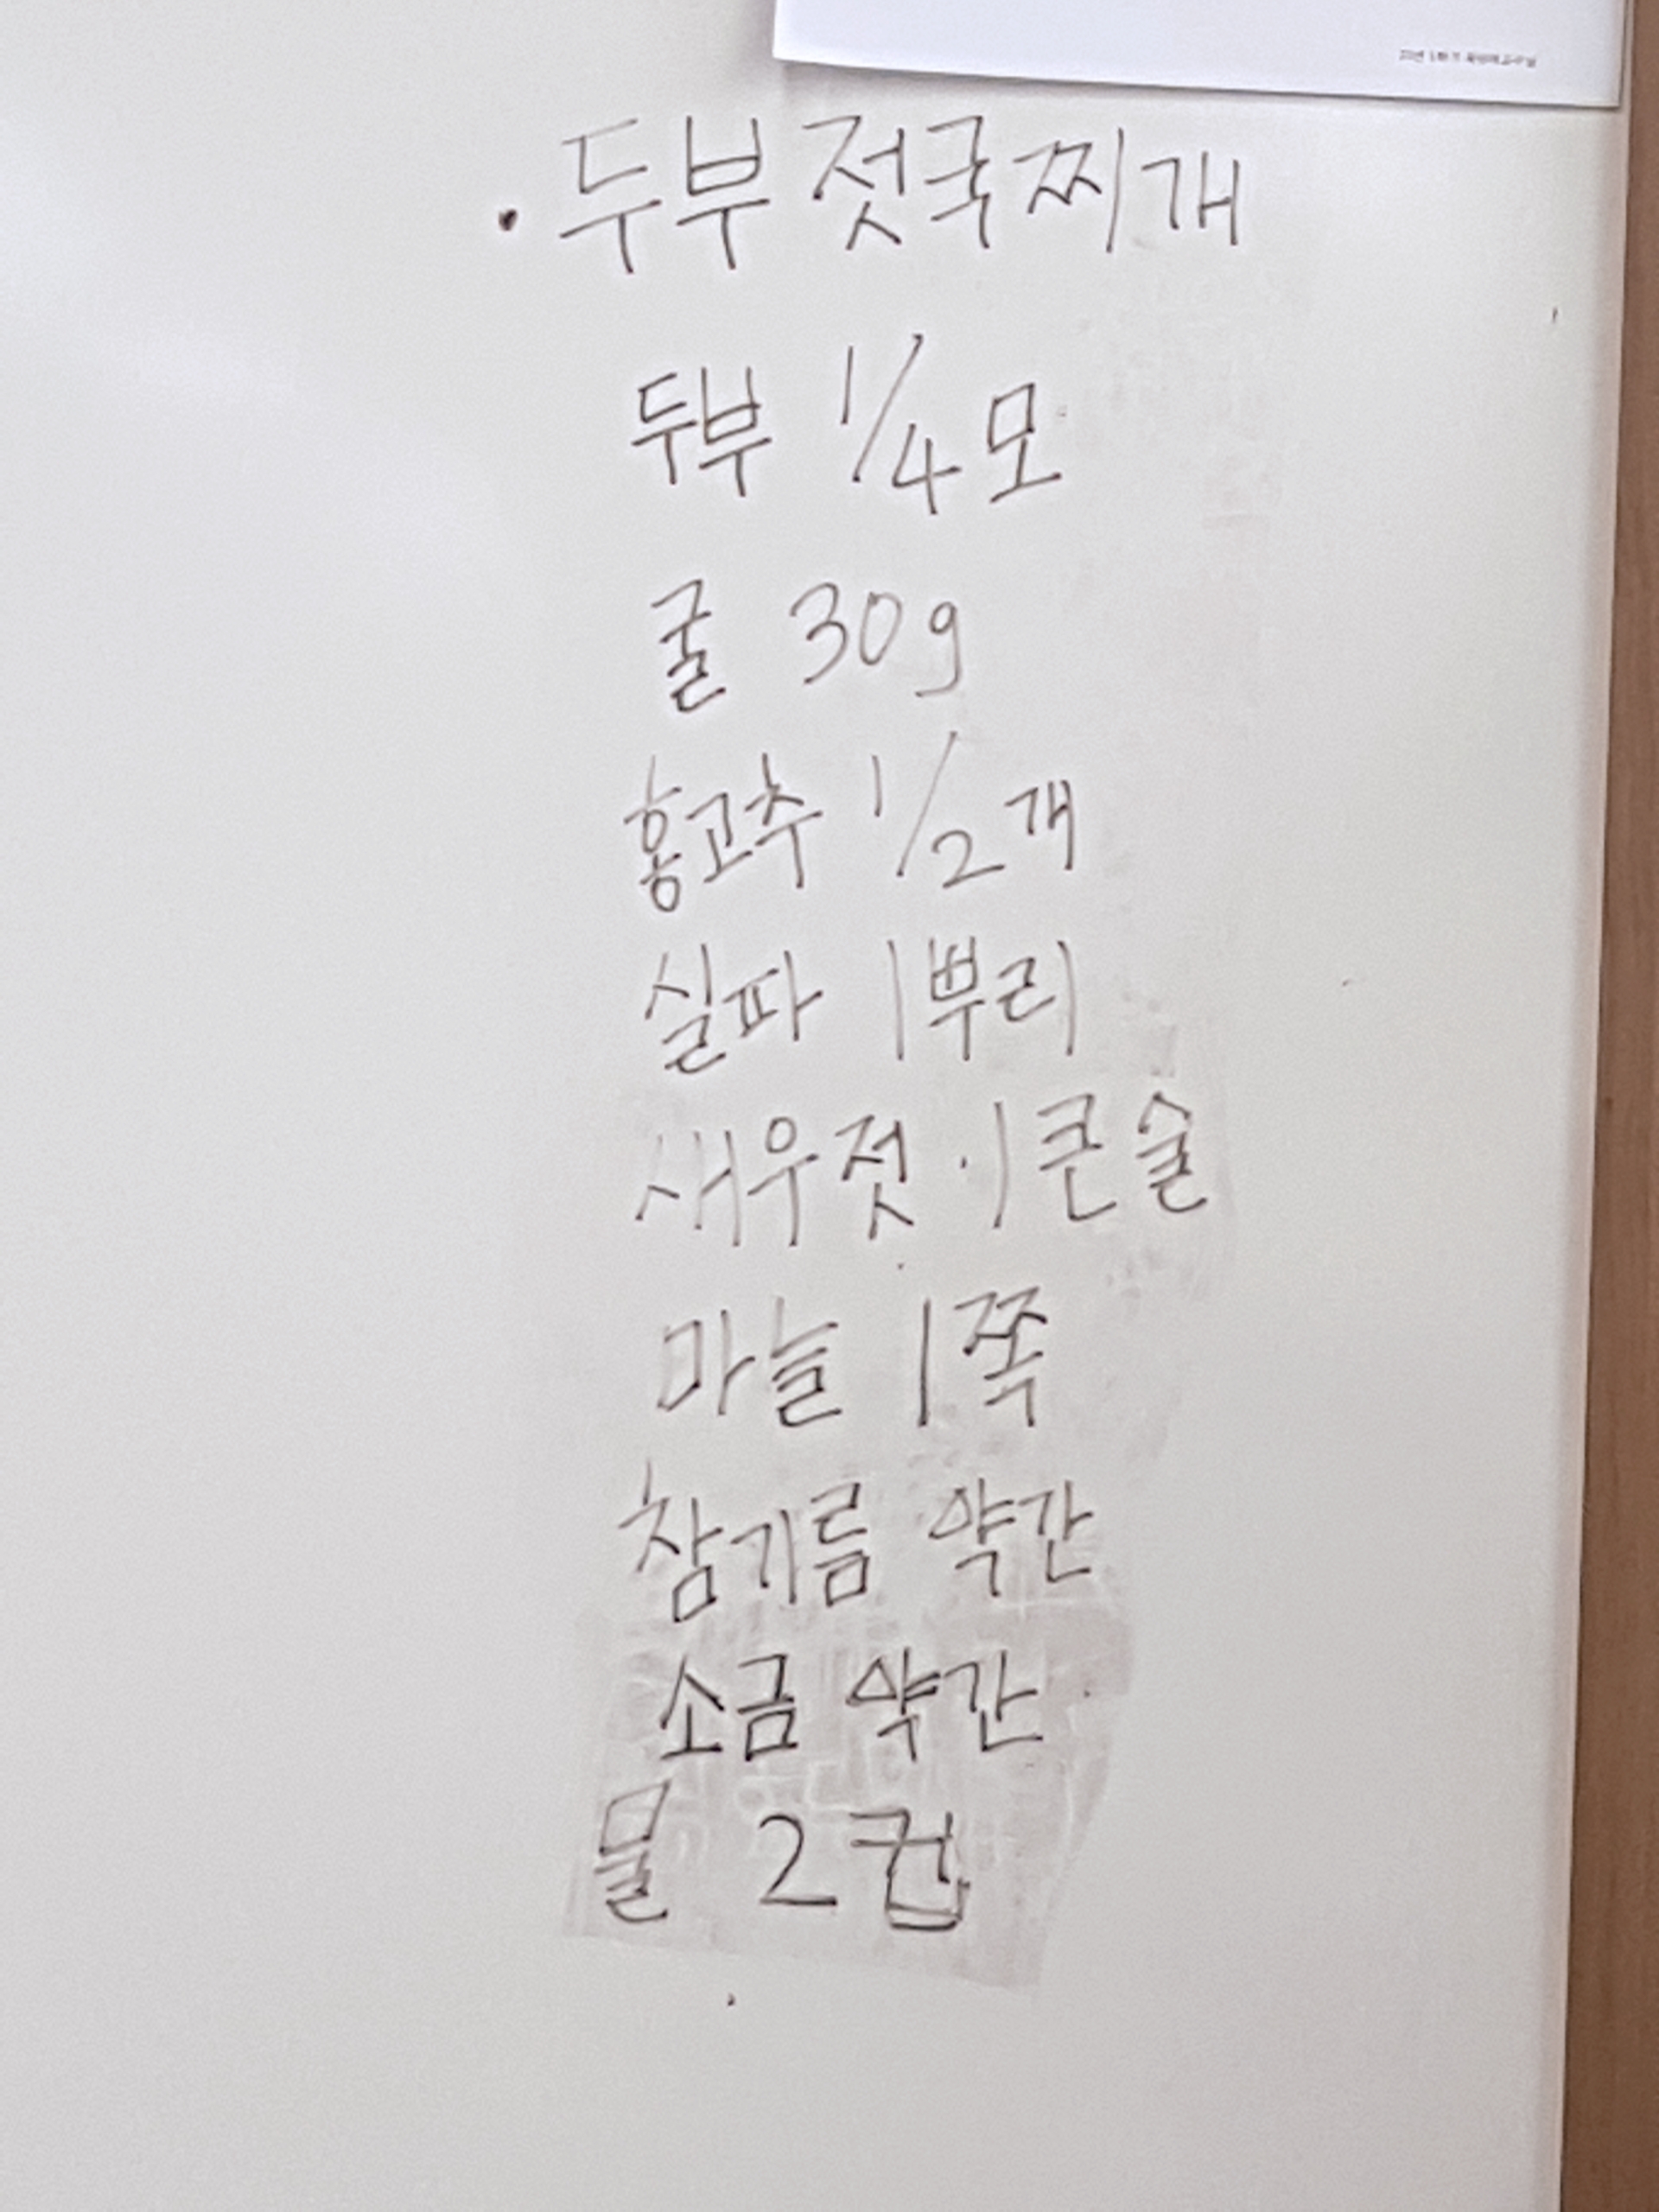 · 두부 젓국찌개
두부 1/4 모
굴 30g
홍고추 1/2개
실파 1뿌리
새우젓 · 1큰술
마늘 1쪽
참기름 약간
소금 약간
물 2컵